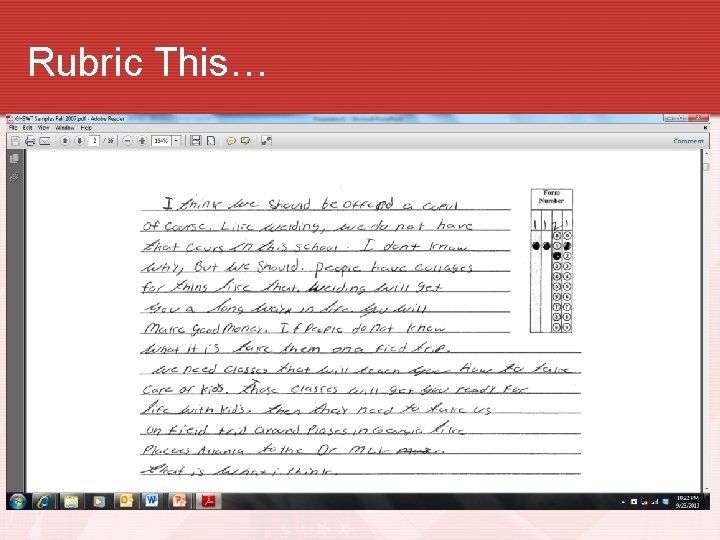 Rubric This…
GHSWT Samples Fall 2007.pdf - Adobe Reader
File Edit View Window Help
2 / 36 194% Comment
I think we should be offend a coeul
of course. Like welding, we do not have
that cours in this school. I dont know
why, But we should. people have collages
for thing like that. welding will get
you a long way in life. You will
make good money. If people do not know
what it is take them on a fied trip.
we need classes that will teach you how to take
care of kids. Those classes will get you ready for
life with kids. then they need to take us
on field trid around plases in Georgia like
to the Dr MLK
that is what i think.
Form
Number
1 1 2 1
10:22 PM
9/25/2013